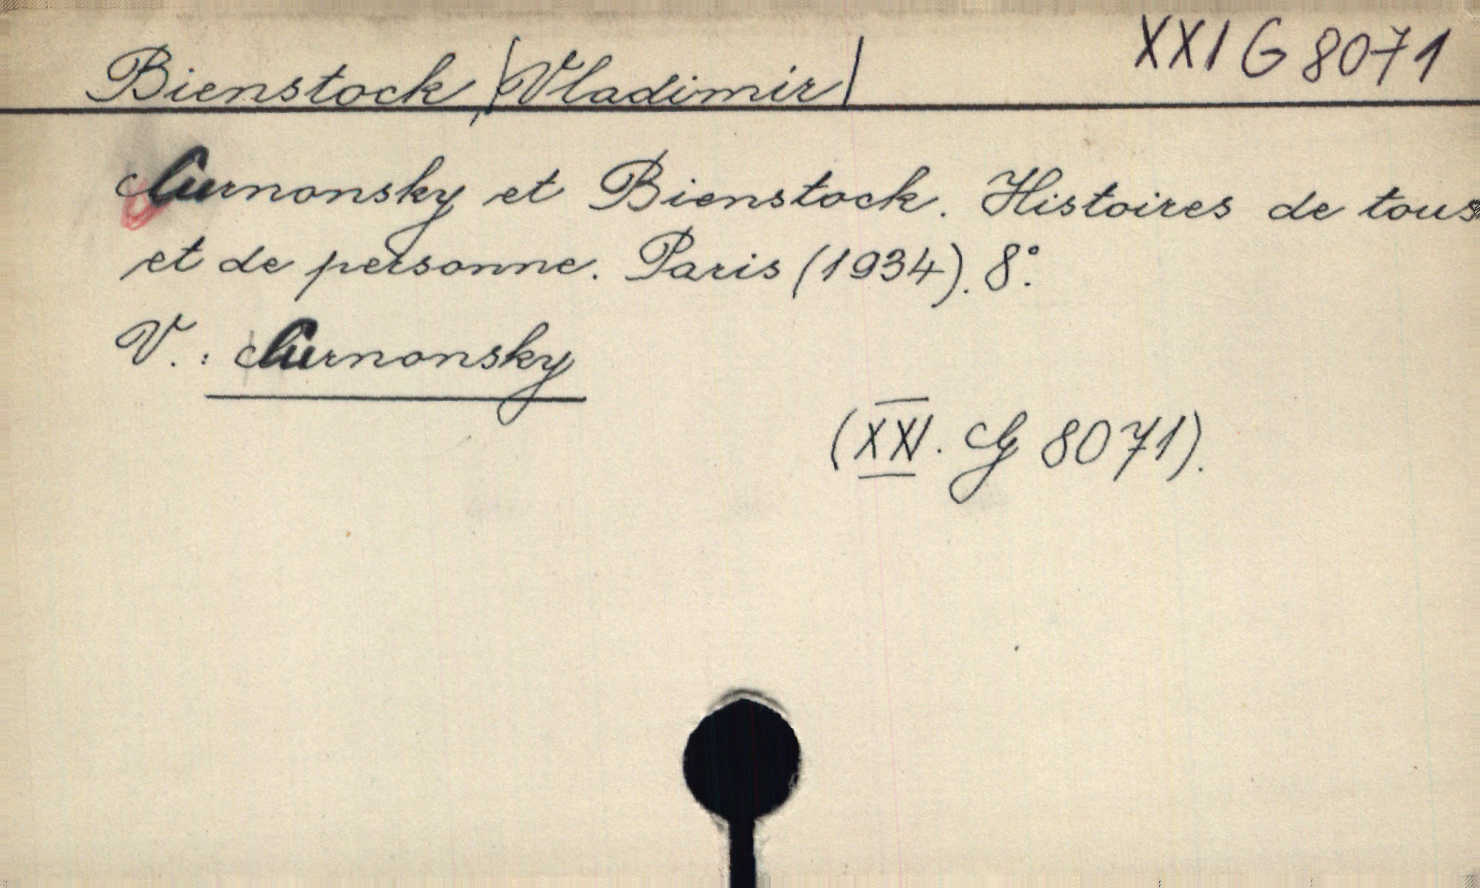 XXI G 8071
Bienstock (Vladimir)
Curnonsky et Bienstock. Histoires de tous
et de personne. Paris (1934). 8°.
V.: Curnonsky
(XXI. G 8071).